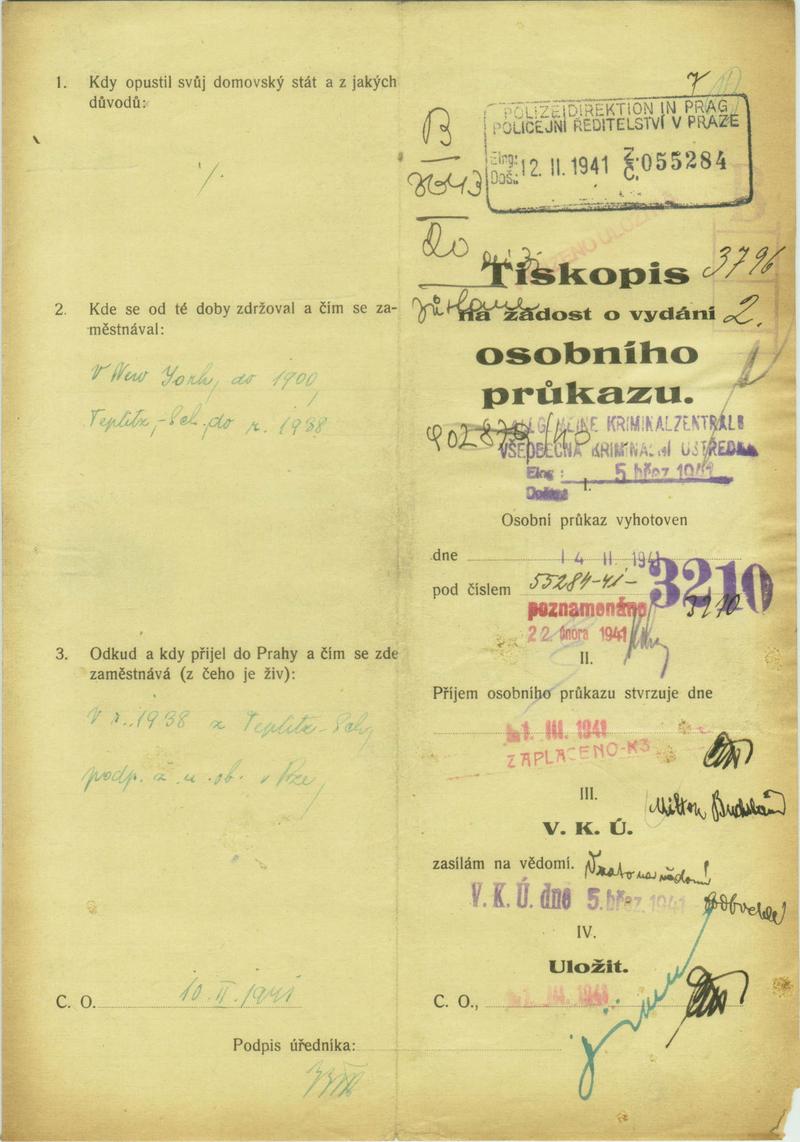 1. Kdy opustil svůj domovský stát a z jakých
důvodů:
./.
2. Kde se od té doby zdržoval a čím se za-
městnával:
V New York, do 1900,
Teplitz,-Sch. do r. 1938
3. Odkud a kdy přijel do Prahy a čím se zde
zaměstnává (z čeho je živ):
V r. 1938 z Teplitz-Sch,
podp. ž. n. ob. v Pze,
C. O. 10. II. 1941
Podpis úředníka:
7
POLIZEIDIREKTION IN PRAG
POLICEJNÍ ŘEDITELSTVÍ V PRAZE
Eing:
Doš.: 12. II. 1941 Z. Č. 055284
B
Do
Tiskopis 3796
na žádost o vydání 2.
osobního
průkazu.
KRIMINALZENTRALE
VŠEOBECNÁ KRIMINÁLNÍ ÚSTŘEDNA
Eing: 5. břez. 1941
Došlo:
I.
Osobní průkaz vyhotoven
dne 14 II. 1941
pod číslem 55284-41- 3210
3210
poznamenáno
22. února 1941
II.
Příjem osobního průkazu stvrzuje dne
1. III. 1941
ZAPLACENO-K3
III.
Milton
V. K. Ú.
zasílám na vědomí. Vzato na vědomí
V. K. Ú. dne 5. břez. 1941
IV.
Uložit.
C. O., 1. III. 1941